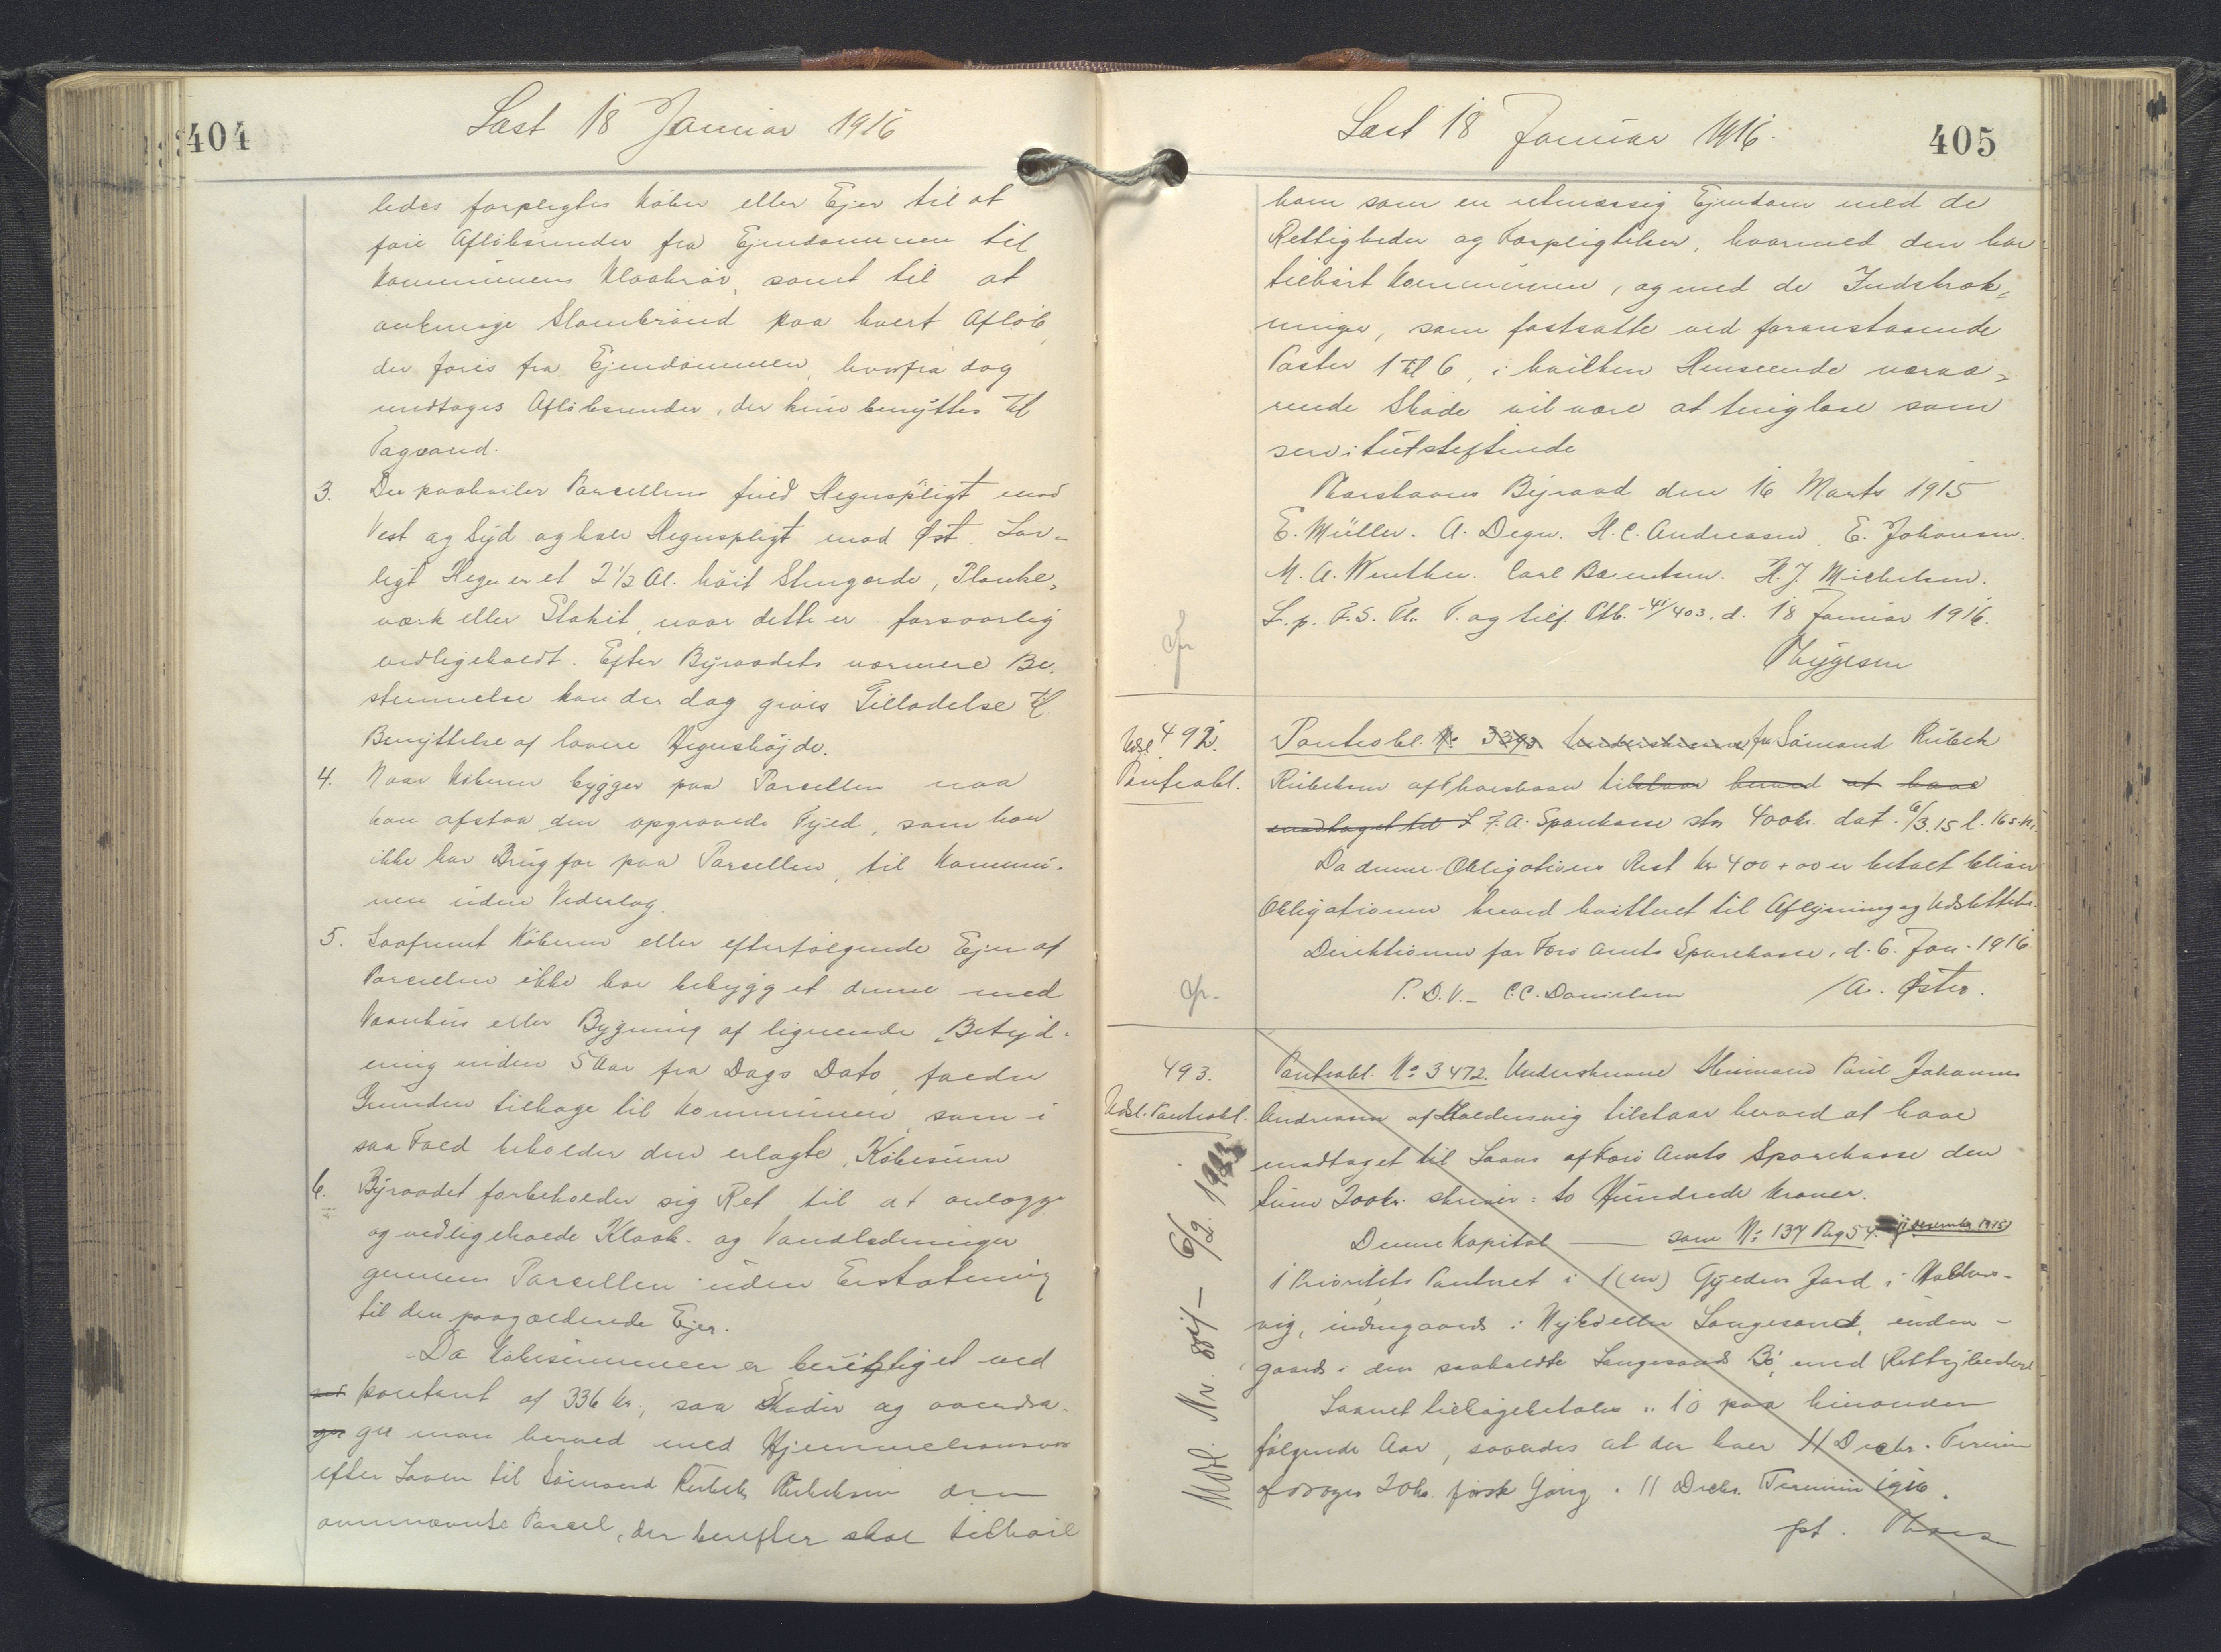 404
Læst 18 Januar 1916
ledes forpligtes Køber eller Ejer til at
føre Afløbsrender fra Ejendommen til
Kommunens Kloakrør, samt til at
anbringe Slambrønd paa hvert Afløb,
der føres fra Ejendommen, hvorfra dog
undtages Afløbsrender, der kun benyttes til
Tagvand.
3. Der paahviler Parcellen fuld Hegnspligt mod
Vest og Syd og halv Hegnspligt mod Øst. Lov-
ligt Hegn er et 2 1/2 Al. höit Stengærde, Planke-
værk eller Stakit, naar dette er forsvarlig
vedligeholdt. Efter Byraadets nærmere Be-
stemmelse kan der dog gives Tilladelse til
Benyttelse af lavere Hegnshøjde.
4. Naar Køberen bygger paa Parcellen maa
han afstaa den opgravede Fyld, som han
ikke har Brug for paa Parcellen, til Kommu-
nen uden Vederlag.
5. Saafremt Køberen eller efterfølgende Ejer af
Parcellen ikke har bebygget denne med
Vaanhus eller Bygning af lignende Betyd-
ning inden 5 Aar fra Dags Dato, falder
Grunden tilbage til Kommunen, som i
saa Fald beholder den erlagte Købesum
6. Byraadet forbeholder sig Ret til at anlægge
og vedligeholde Kloak- og Vandledninger
gennem Parcellen uden Erstatning
til den paagældende Ejer.
Da Købesummen er berigtiget ved
kontant af 336 Kr., saa skøder og overdra-
ger man herved med Hjemmelsansvar
efter Loven til Sømand Rubek Rubeksen den
ovennævnte Parcel, der herefter skal tilhøre
405
Læst 18 Januar 1916.
ham som en retmæssig Ejendom med de
Rettigheder og Forpligtelser, hvormed den har
tilhørt Kommunen, og med de Indskræk-
ninger, som fastsatte ved foranstaaende
Poster 1 til 6, i hvilken Henseende nærvæ-
rende Skøde vil være at tinglæse som
servitutstiftende
Thorshavns Byraad den 16 Marts 1915
E. Müller. A. Degn. H. C. Andreasen. E. Johansen.
M. A. Winther. Carl Bærentsen. H. J. Michelsen.
L. p. F. S. Th. T. og tilf. Ptb. 41/403, d. 18 Januar 1916.
Thygesen
492.
Udsl.
Panteobl.
Panteobl. No 3393 Underskrevne fra Sömand Rubek
Rubeksen af Thorshavn tilstaar herved at have
modtaget til L F. A. Sparekasse stor 400 kr. dat. 6/3.15 l. 16 s. M.
Da denne Obligations Rest Kr 400 + 00 er betalt bliver
Obligationen herved kvitteret til Aflysning og Udslettelse.
Direktionen for Færø Amts Sparekasse, d. 6. Jan. 1916
P. D. V. - C. C. Danielsen / A. Østerø.
493.
Udsl. Pantobl.
Panteobl. No 3472. Underskrevne Husmand Poul Johannes
Andreasen af Haldersvig tilstaar herved at have
modtaget til Laans af Færø Amts Sparekasse den
Sum 200 Kr. skriver: to Hundrede Kroner.
Denne Kapital —— som No 137 Pag 54. 11 December 1915
1 Prioritets Panteret i 1 (en) Gylden Jord i Haldors-
vig, indengaards i Nykd eller Langesand, uden-
gaards i den saakaldte Langesands Bø, med Rettigheder
Laanet tilbagebetales i 10 paa hinanden
følgende Aar, saaledes at der hver 11 Decbr. Termin
afdrages 20 Kr. første Gang i 11 Decbr. Termin 1916.
pt. Thors
Mdl. Nr. 811 - 6/2. 1923